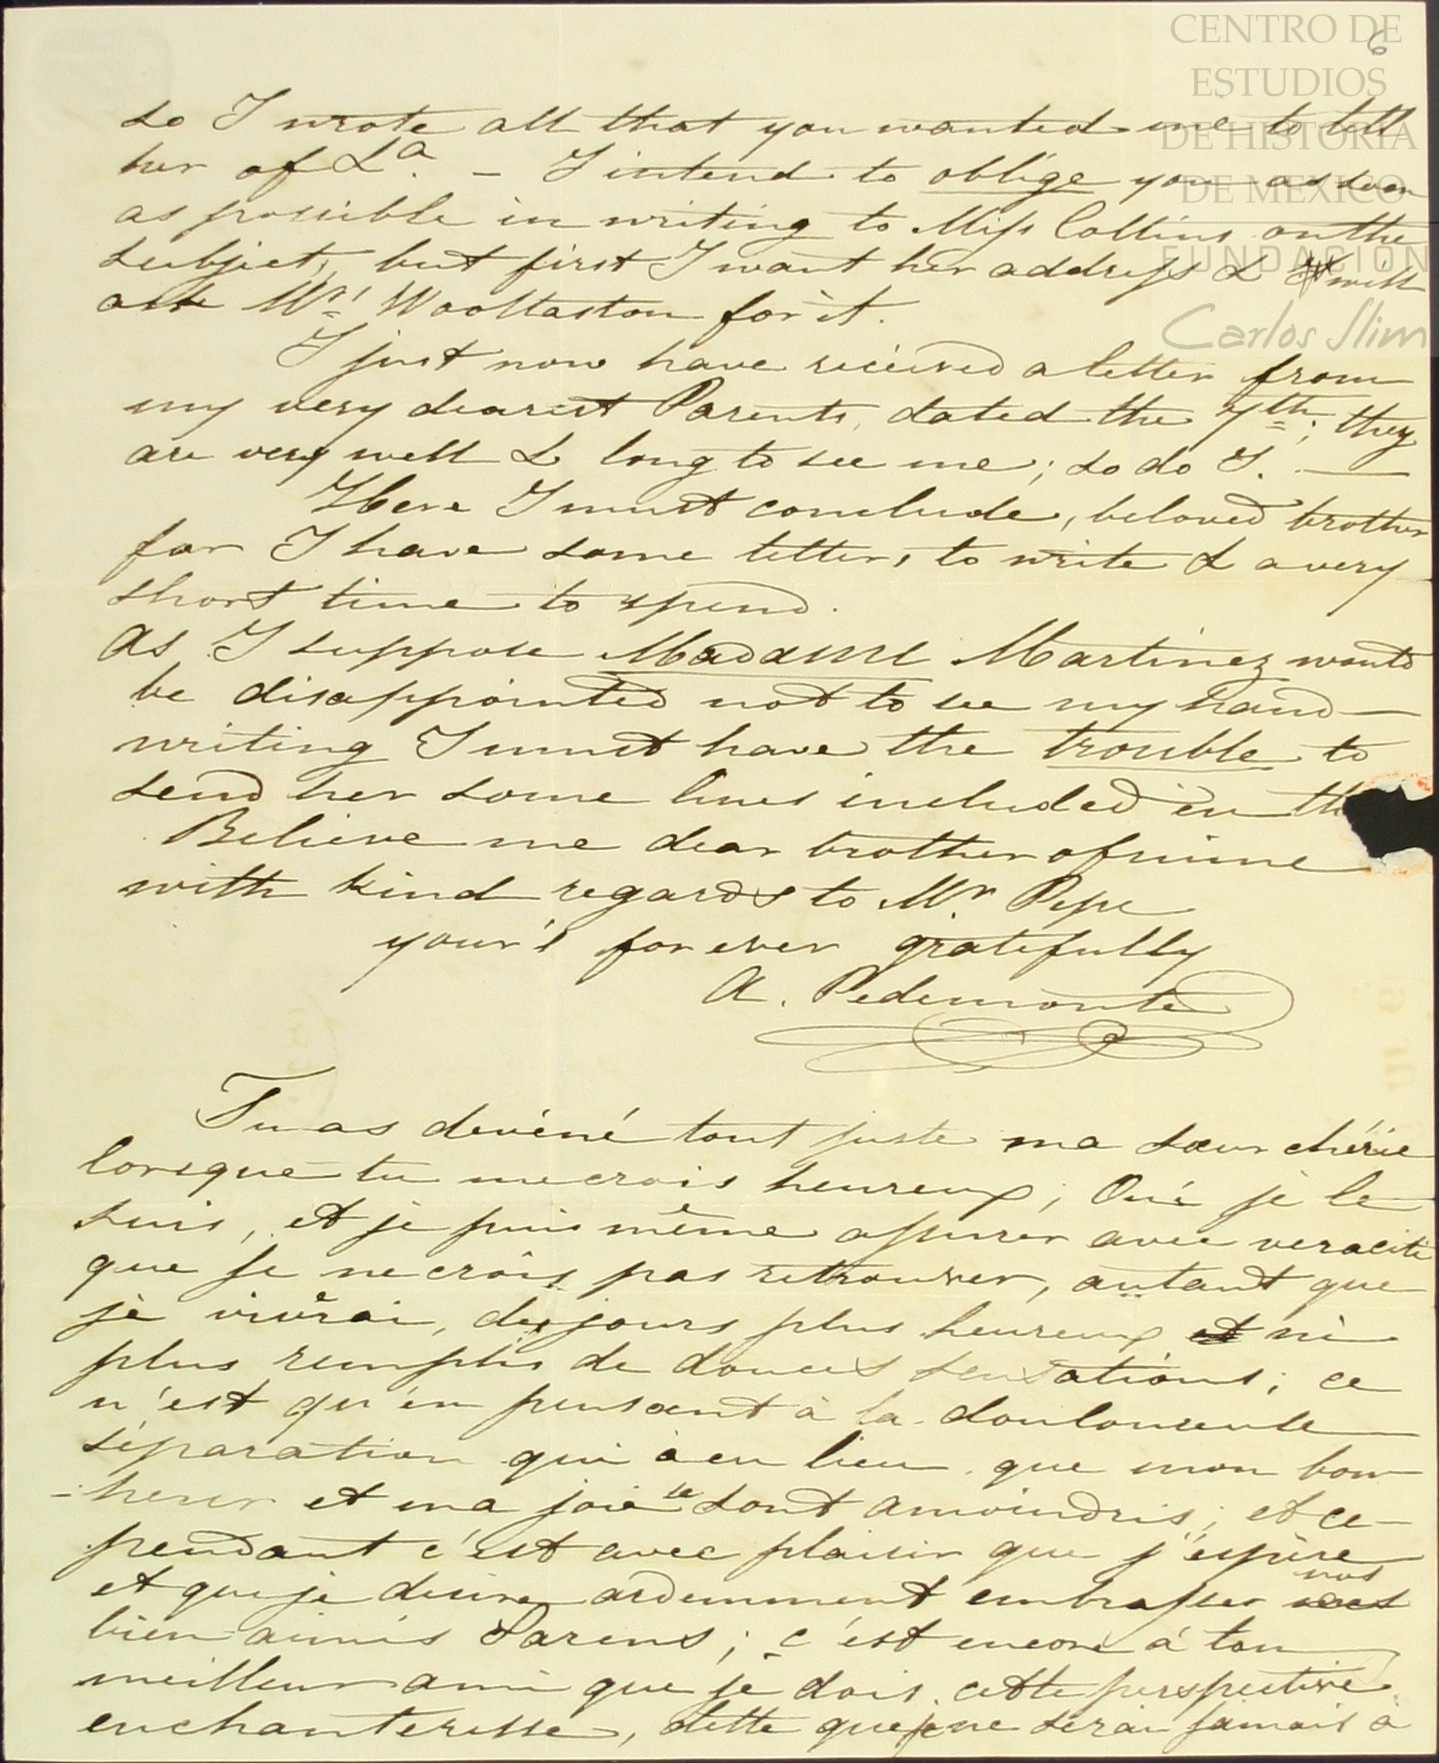 CENTRO DE
ESTUDIOS
DE HISTORIA
DE MEXICO
FUNDACIÓN
Carlos Slim
6
so I wrote all that you wanted me to tell
her of La. – I intend to oblige you as soon
as possible in writing to Miss Collins on the
subject, but first I want her address & will
ask Mrs Woollaston for it.
I just now have received a letter from
my very dearest Parents, dated the 7th; they
are very well & long to see me; so do I. —
Here I must conclude, beloved brother
for I have some letters to write & a very
short time to spend.
As I suppose Madame Martinez would
be disappointed not to see my hand—
writing I must have the trouble to
send her some lines included in
Believe me dear brother of mine
with kind regards to Mr. Pepe
your's for ever gratefully
A. Pedemonte
Tu as deviné tout juste ma sœur chérie
lorsque tu me crois heureux; Oui je le
suis, et je puis même assurer avec veracité
que je ne crois pas retrouver, autant que
je vivrai, des jours plus heureux et ni
plus remplis de douces sensations; ce
n'est qu'en pensant à la douloureuse
séparation qui à eu lieu que mon bon
-heur et ma joie se sont amoindris; et ce-
pendant c'est avec plaisir que j'espère
et que je desire ardemment embrasser nos
bien aimés Parens; c'est encore à ton
meilleur ami que je dois cette perspective
enchanteresse, dette que je ne serai jamais à